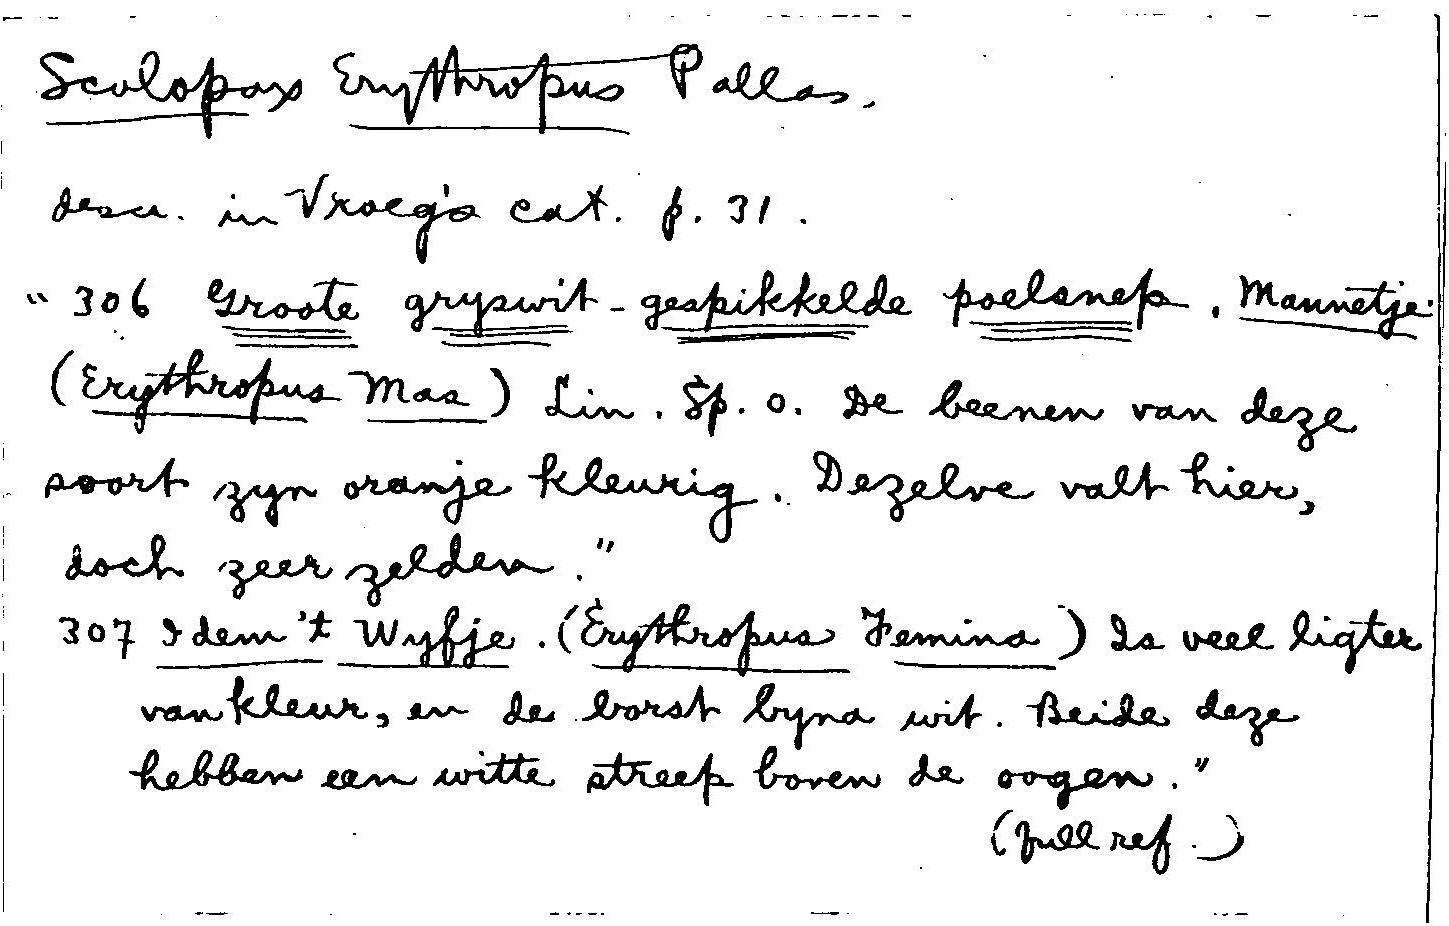 Scolopax Erythropus Pallas.
descr. in Vroeg's cat. p. 31.
"306 Groote gryswit-gespikkelde poelsnep. Mannetje.
(Erythropus Mas) Lin. Sp. o. De beenen van deze
soort zyn oranje kleurig. Dezelve valt hier,
doch zeer zelden."
307 Idem 't Wyfje. (Erythropus Femina) Is veel ligter
van kleur, en de borst byna wit. Beide deze
hebben een witte streep boven de oogen."
(full ref.)